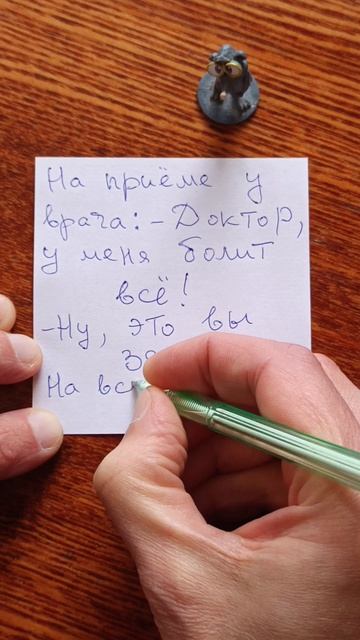 На приёме у
врача:-Доктор,
у меня болит
всё!
-Ну, это вы
На вс